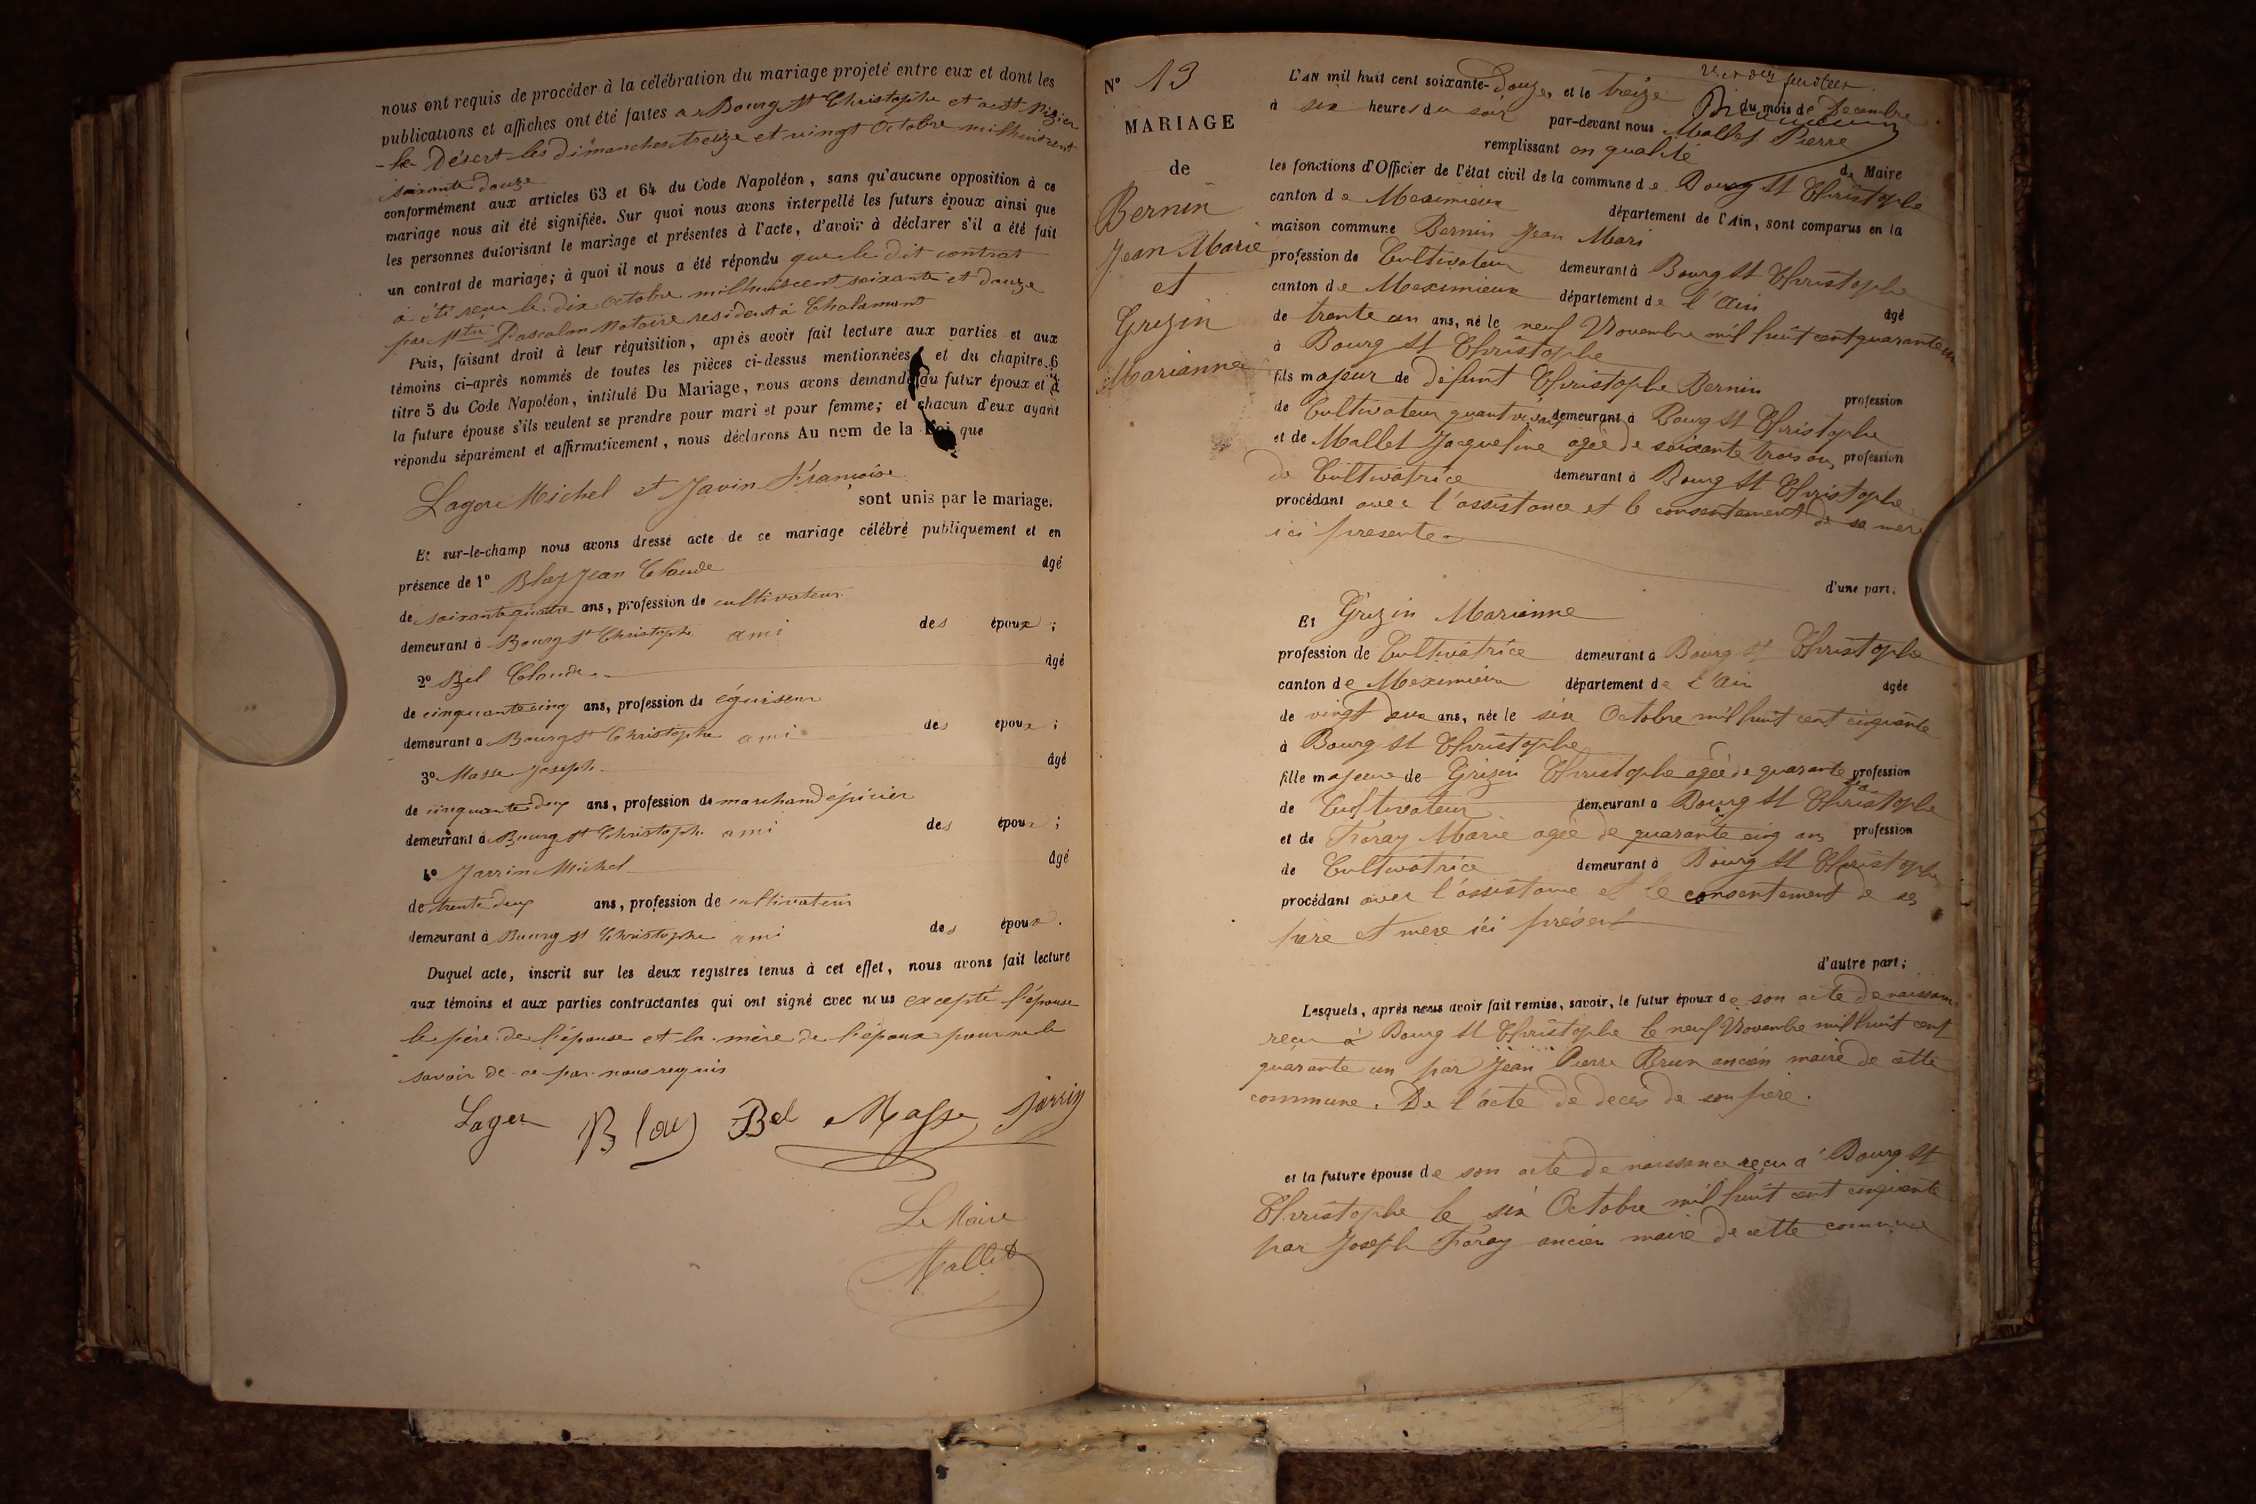 nous ont requis de procéder à la célébration du mariage projeté entre eux et dont les
publications et affiches ont été faites à Bourg St Christophe et a St Nizier
-le Désert les dimanches treize et vingt Octobre mil huit cent
soixante douze
conformément aux articles 63 et 64 du Code Napoléon, sans qu'aucune opposition à ce
mariage nous ait été signifiée. Sur quoi nous avons interpellé les futurs époux ainsi que
les personnes autorisant le mariage et présentes à l'acte, d'avoir à déclarer s'il a été fait
un contrat de mariage; à quoi il nous a été répondu que le dit contrat
a été reçu le dix octobre mil huit cent soixante et douze
par Mtre Pascalon Notaire résident à Chalamont
Puis, faisant droit à leur réquisition, après avoir fait lecture aux parties et aux
témoins ci-après nommés de toutes les pièces ci-dessus mentionnées et du chapitre 6
titre 5 du Code Napoléon, intitulé Du Mariage, nous avons demandé au futur époux et à
la future épouse s'ils veulent se prendre pour mari et pour femme; et chacun d'eux ayant
répondu séparément et affirmativement, nous déclarons Au nom de la Loi que
Lager Michel et Javin Françoise
sont unis par le mariage.
Et sur-le-champ nous avons dressé acte de ce mariage célébré publiquement et en
présence de 1° Blay Jean Claude âgé
de soixante quatre ans, profession de cultivateur
demeurant à Bourg St Christophe ami des époux;
2° Bel Claude âgé
de cinquante cinq ans, profession de
demeurant à Bourg St Christophe ami des époux;
3° Masse Joseph âgé
de cinquante deux ans, profession de marchand épicier
demeurant à Bourg St Christophe ami des époux;
4° Jarrin Michel âgé
de trente deux ans, profession de cultivateur
demeurant à Bourg St Christophe ami des époux.
Duquel acte, inscrit sur les deux registres tenus à cet effet, nous avons fait lecture
aux témoins et aux parties contractantes qui ont signé avec nous excepté l'épouse
le père de l'épouse et la mère de l'époux pour ne le
savoir de ce par nous requis
Lager Blay Bel Masse Jarrin
Le Maire
Mallet
N° 13
MARIAGE
de
Bernin
Jean Marie
et
Grizin
Marianne
L'AN mil huit cent soixante-douze, et le treize du mois de Decembre
à six heures du soir par-devant nous Mallet Pierre
remplissant en qualité de Maire
les fonctions d'Officier de l'état civil de la commune de Bourg St Christophe
canton de Meximieux département de l'Ain, sont comparus en la
maison commune Bernin Jean Mari
profession de Cultivateur demeurant à Bourg St Christophe
canton de Meximieux département de l'Ain âgé
de trente un ans, né le neuf Novembre mil huit cent quarante un
à Bourg St Christophe
fils majeur de défunt Christophe Bernin profession
de Cultivateur quant vivait demeurant à Bourg St Christophe
et de Mallet Jacqueline agée de soixante trois ans profession
de Cultivatrice demeurant à Bourg St Christophe
procédant avec l'assistance et le consentement de sa mere
ici presente
d'une part.
Et Grizin Marianne
profession de Cultivatrice demeurant à Bourg St Christophe
canton de Meximieux département de l'Ain âgée
de vingt deux ans, née le six Octobre mil huit cent cinquante
à Bourg St Christophe
fille majeure de Grizin Christophe agée de quarante profession
de Cultivateur demeurant à Bourg St Christophe
et de Foray Marie agée de quarante cinq ans profession
de Cultivatrice demeurant à Bourg St Christophe
procédant avec l'assistance et le consentement de ses
père et mere ici présent
d'autre part;
Lesquels, après nous avoir fait remise, savoir, le futur époux de son acte de naissance
reçu à Bourg St Christophe le neuf Novembre mil huit cent
quarante un par Jean Pierre Brun ancien maire de cette
commune. De l'acte de décès de son père.
et la future épouse de son acte de naissance reçu a Bourg St
Christophe le six Octobre mil huit cent cinquante
par Joseph Foray ancien maire de cette commune